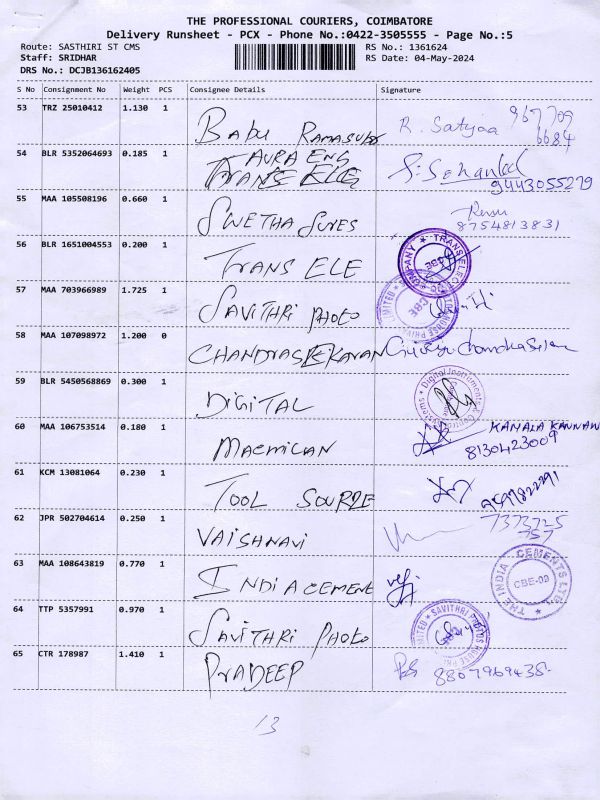 THE PROFESSIONAL COURIERS, COIMBATORE
Delivery Runsheet - PCX - Phone No.:0422-3505555 - Page No.:5
Route: SASTHIRI ST CMS
RS No.: 1361624
Staff: SRIDHAR
RS Date: 04-May-2024
DRS No.: DCJB136162405
S No Consignment No Weight PCS Consignee Details Signature
53 TRZ 25010412 1.130 1
BABU RAMASUBB R. Sathyaa 967709
6684
54 BLR 5352064693 0.185 1
AURA ENG
TRANS ELE 9443055279
55 MAA 105508196 0.660 1
SWETHA SURES 8754813831
56 BLR 1651004553 0.200 1
TRANS ELE
57 MAA 703966989 1.725 1
SAVITHRI PHOTO
58 MAA 107098972 1.200 0
CHANDRASEKARAN
59 BLR 5450568869 0.300 1
DIGITAL
60 MAA 106753514 0.180 1
MACMILAN KAMALA KANNAN
8130423009
61 KCM 13081064 0.230 1
TOOL SOURCE
62 JPR 502704614 0.250 1
VAISHNAVI 7373725
757
63 MAA 108643819 0.770 1
INDIA CEMENT THE INDIA CEMENTS LTD
CBE-09
64 TTP 5357991 0.970 1
SAVITHRI PHOTO
65 CTR 178987 1.410 1
PRADEEP 8807969435
13